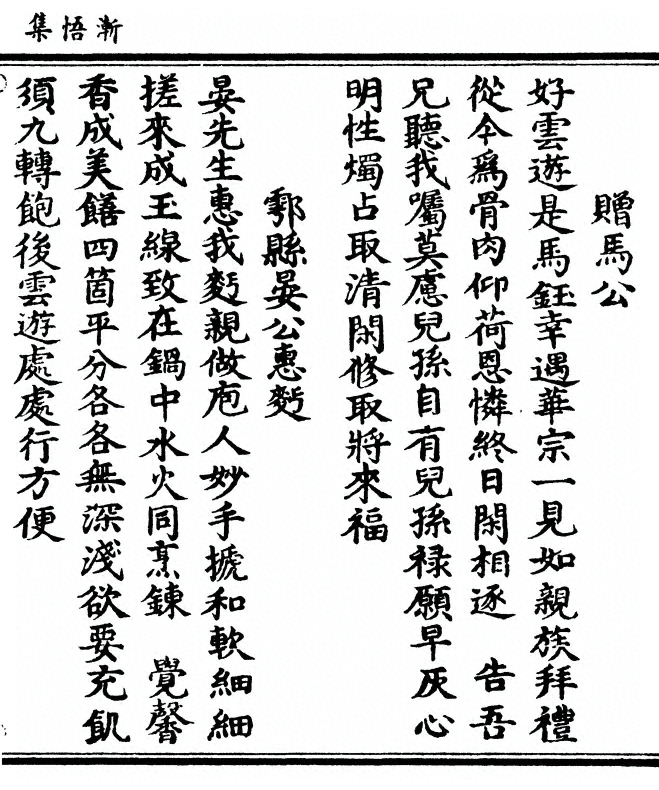 漸悟集
贈馬公
好雲遊是馬鈺幸遇華宗一見如親族拜禮
從今爲骨肉仰荷恩憐終日閑相逐　告吾
兄聽我囑莫慮兒孫自有兒孫祿願早灰心
明性燭占取清閑修取將來福
鄠縣晏公惠麪
晏先生惠我麪親做庖人妙手搋和軟細細
搓來成玉線致在鍋中水火同烹鍊　覺馨
香成美饍四箇平分各各無深淺欲要充飢
須九轉飽後雲遊處處行方便